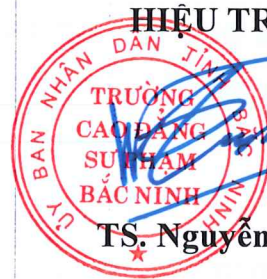 HIỆU TR
ỦY BAN NHÂN DÂN TỈNH BẮC NINH
TRƯỜNG
CAO ĐẲNG
SƯ PHẠM
BẮC NINH
TS. Nguyễn